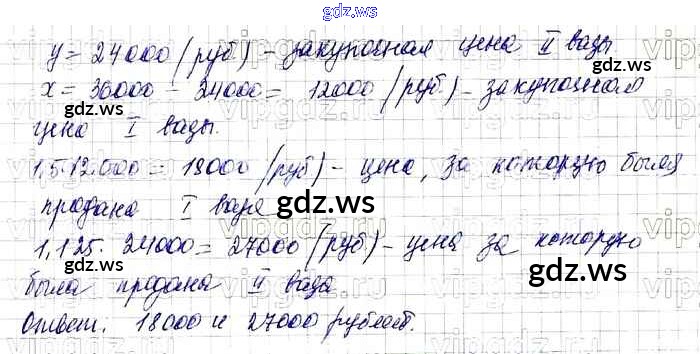 gdz.ws
y = 24000 (руб) - закупочная цена II вазы
x = 36000 - 24000 = 12000 (руб.) - закупочная
gdz.ws
gdz.ws
цена I вазы.
1,5·12000 = 18000 (руб) - цена, за которую была
продана I ваза
gdz.ws
gdz.ws
1,125 · 24000 = 27000 (руб) - цена за которую
была продана II ваза
Ответ: 18000 и 27000 рублей.
gdz.ws
gdz.ws